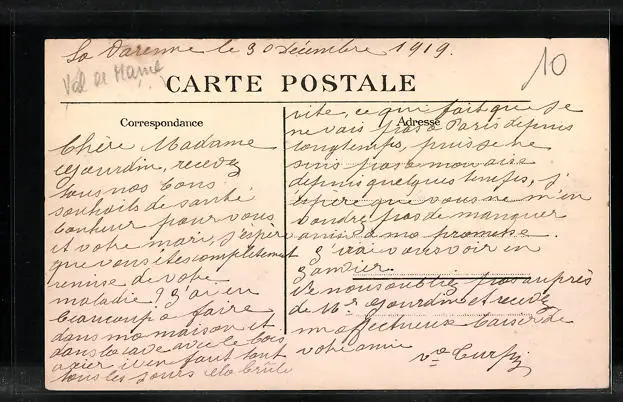 La Varenne le 30 décembre 1919.
10
Val de Marne
CARTE POSTALE
Correspondance
Adresse
Chère Madame
Gourdin, recevez
tous nos bons
souhaits de santé
bonheur pour vous
et votre mari, j'espère
que vous êtes complètement
remise de votre
maladie? J'ai eu
beaucoup à faire
dans ma maison et
dans la cave avec le bois
scier il en faut tant
tous les jours cela brûle
vite, ce qui fait que je
ne vais pas à Paris depuis
longtemps, puis je ne
suis pas à mon aise
depuis quelques temps, j'
espère que vous ne m'en
voudrez pas de manquer
ainsi à ma promesse.
J'irai vous voir en
janvier.
Ne nous oubliez pas auprès
de Mr Gourdin et recevez
un affectueux baiser de
votre amie
Vve